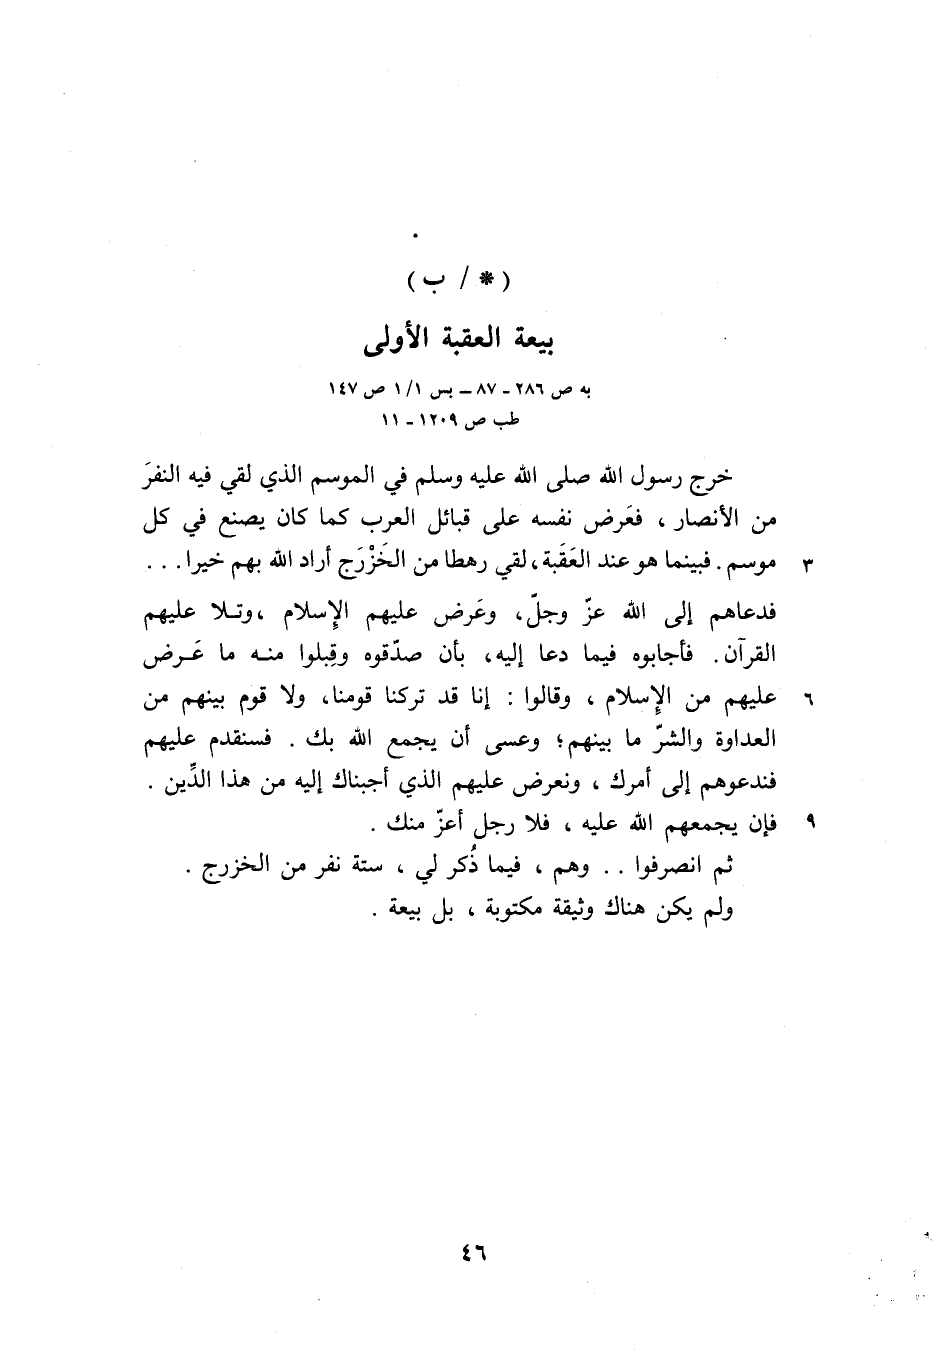 (* / ب)
بيعة العقبة الأولى
به ص ٢٨٦ ـ ٨٧ ــ بس ١/١ ص ١٤٧
طب ص ١٢٠٩ ـ ١١
خرج رسول الله صلى الله عليه وسلم في الموسم الذي لقي فيه النفرَ
من الأنصار ، فعَرض نفسه على قبائل العرب كما كان يصنع في كل
٣ موسم . فبينما هو عند العَقَبة، لقي رهطا من الخَزْرَج أراد الله بهم خيرا . . .
فدعاهم إلى الله عزّ وجلّ، وعَرض عليهم الإسلام ، وتلا عليهم
القرآن . فأجابوه فيما دعا إليه، بأن صدّقوه وقبلوا منه ما عَرض
٦ عليهم من الإسلام ، وقالوا : إنا قد تركنا قومنا، ولا قوم بينهم من
العداوة والشرّ ما بينهم؛ وعسى أن يجمع الله بك . فسنقدم عليهم
فندعوهم إلى أمرك ، ونعرض عليهم الذي أجبناك إليه من هذا الدِّين .
٩ فإن يجمعهم الله عليه ، فلا رجل أعزّ منك .
ثم انصرفوا . . وهم ، فيما ذُكر لي ، ستة نفر من الخزرج .
ولم يكن هناك وثيقة مكتوبة ، بل بيعة .
٤٦